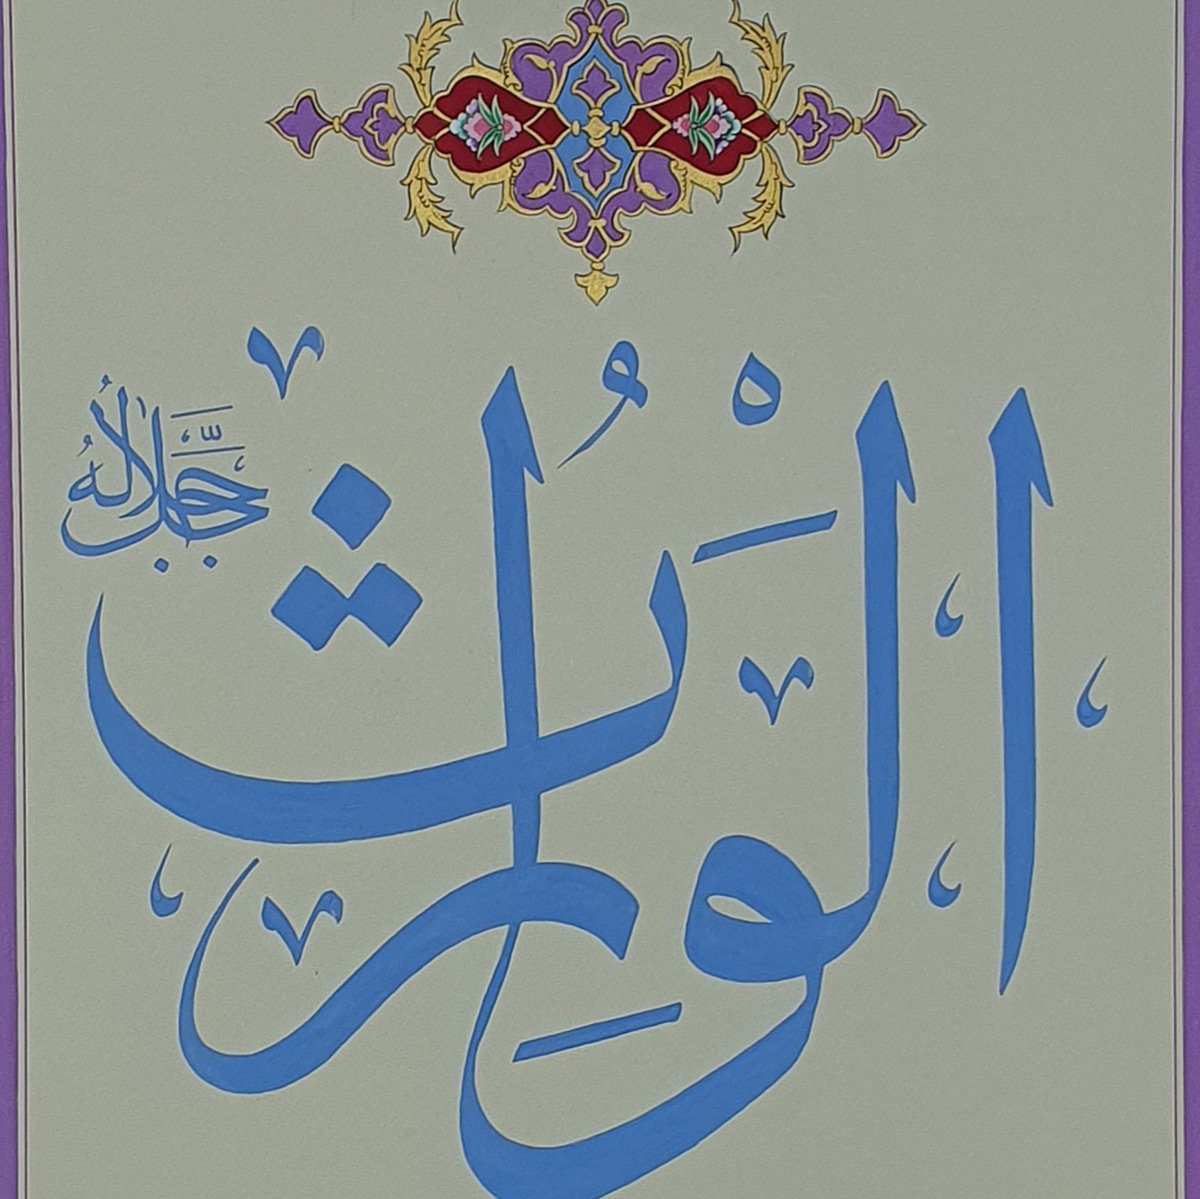 الْوَارِثُ
جَلَّ جَلَالُهُ